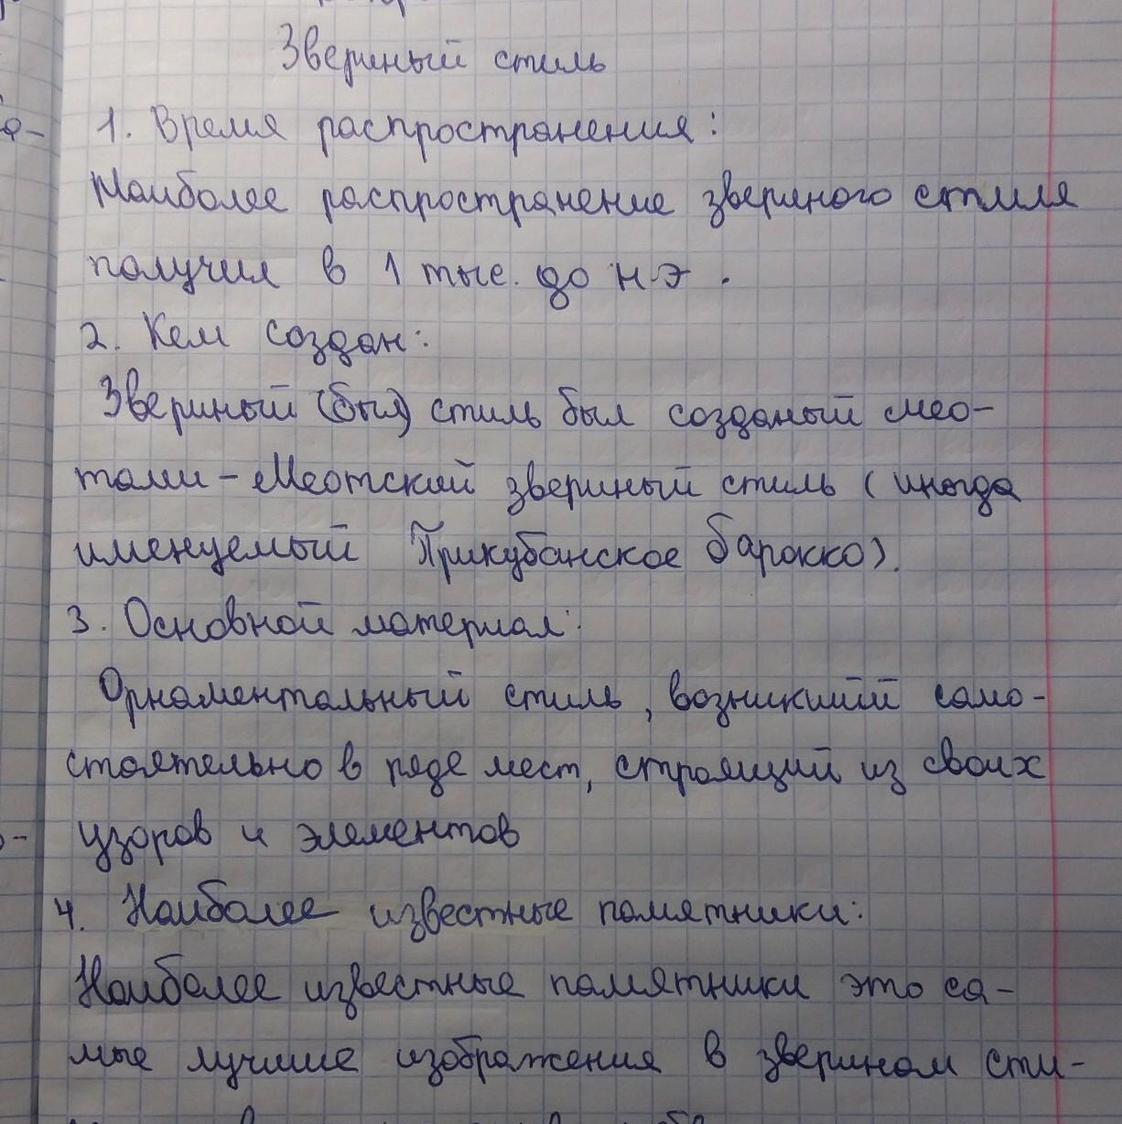 Звериный стиль
1. Время распространения:
Наиболее распространение звериного стиля
получил в 1 тыс. до н.э.
2. Кем создан:
Звериный (был) стиль был созданый мео-
тами - Меотский звериный стиль (иногда
именуемый Прикубанское барокко).
3. Основной материал:
Орнаментальный стиль, возникший само-
стоятельно в ряде мест, строящий из своих
узоров и элементов
4. Наиболее известные памятники:
Наиболее известные памятники это са-
мые лучшие изображения в зверином сти-